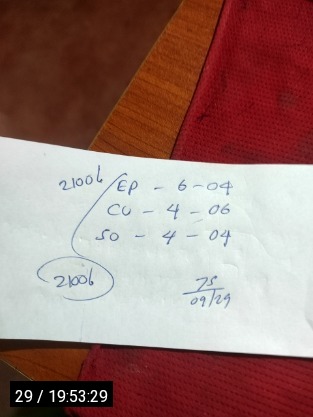 21006 / EP - 6 - 04
CU - 4 - 06
SO - 4 - 04
21006
09/29
29 / 19:53:29